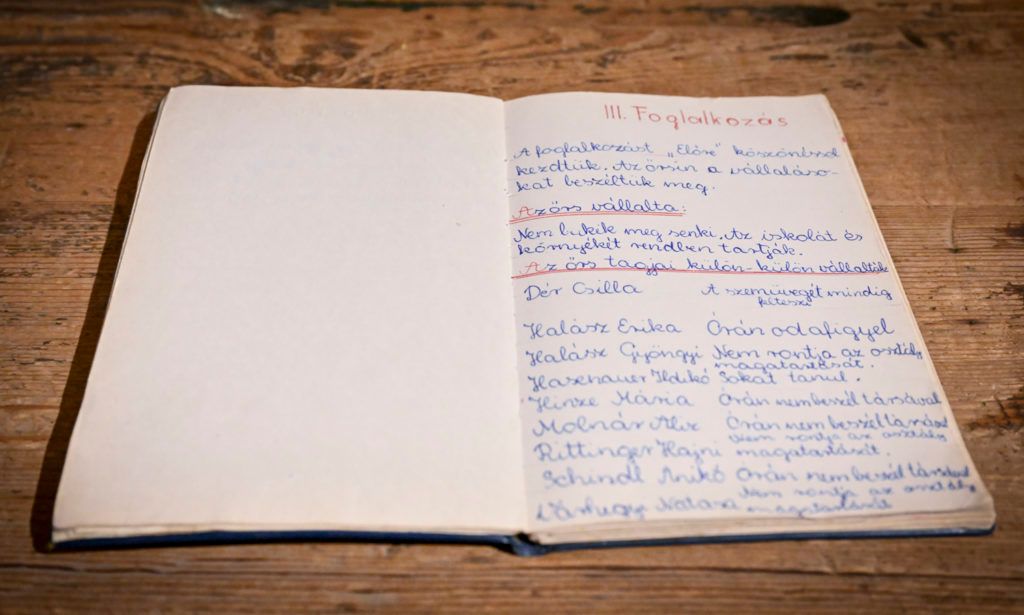 III. Foglalkozás
A foglalkozást „Előre" köszönéssel
kezdtük. Az őrsön a vállaláso-
kat beszéltük meg.
Az őrs vállalta:
Nem bukik meg senki. Az iskolát és
környékét rendben tartják.
Az őrs tagjai külön-külön vállalták
Dér Csilla A szemüvegét mindig
felteszi
Halász Erika Órán odafigyel
Halász Gyöngyi Nem rontja az osztály
magatartását.
Hasenauer Ildikó Sokat tanul.
Hinze Mária Órán nem beszél társával
Molnár Alix Órán nem beszél társával
Nem rontja az osztály
Rittinger Hajni magatartását.
Schindl Anikó Órán nem beszél társával
Nem rontja az osztály
Várhegyi Natasa magatartását